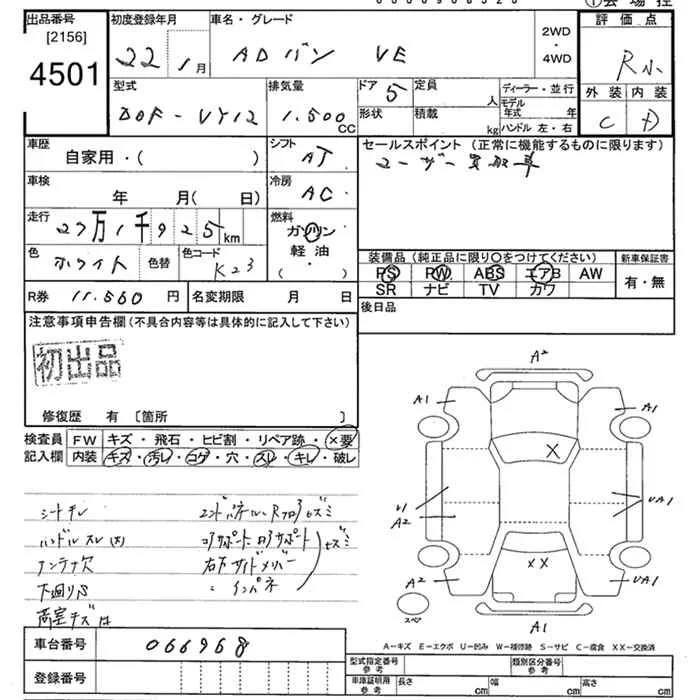 ①会場控
出品番号
[2156]
4501
初度登録年月
22 1月
車名・グレード
ADバン VE
2WD
・
4WD
評価点
R小
外装 内装
C D
型式
DBF-VY12
排気量
1.500
CC
ドア 5
形状
定員 人
積載 kg
ディーラー・並行
モデル
年式 年
ハンドル 左・右
車歴
自家用・( )
シフト
AT
セールスポイント (正常に機能するものに限ります)
ユーザー買取車
車検
年 月( 日)
冷房
AC
走行
27万1千925km
燃料
ガソリン
軽油・
( ・ )
色
ホワイト
色替
色コード
K23
装備品 (純正品に限り○をつけてください)
PS PW ABS エアB AW
SR ナビ TV カワ
新車保証書
有・無
R券 11.560 円
名変期限 月 日
後日品
注意事項申告欄 (不具合内容等は具体的に記入して下さい)
初出品
修復歴 有 〔箇所 〕
検査員
記入欄
FW キズ・飛石・ヒビ割・リペア跡・×要
内装 キズ・汚レ・コゲ・穴・スレ・キレ・破レ
シートキレ
ハンドルスレ(大)
アンテナ欠
下廻りS
荷室キズ
エンドパネル・Rフロアセズミ
コアサポート
セズミ
右下サイドメンバー
インパネ
A2
A1
A1
X
U1
A2
UA1
A2
XX
UA1
スペア
A1
A-キズ E-エクボ U-凹み W-補修跡 S-サビ C-腐食 XX-交換済
車台番号 066968
登録番号
型式指定番号
参考
類別区分番号
参考
車庫証明用
参考
長さ cm
幅 cm
高さ cm